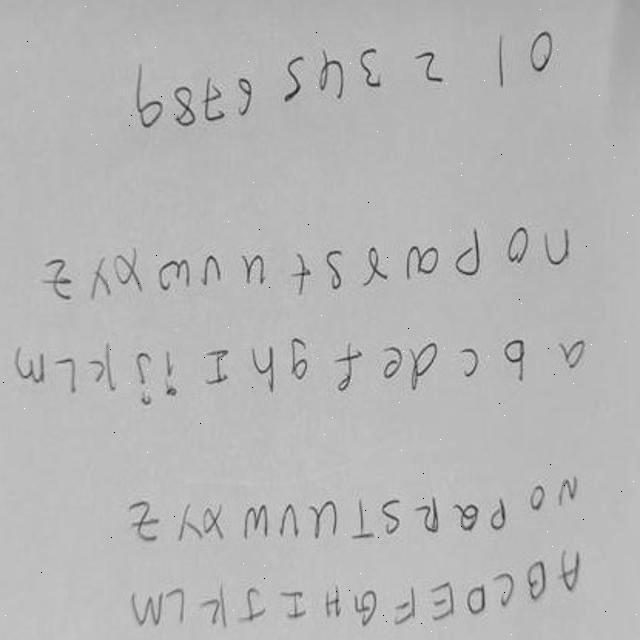 A B C D E F G H I J K L M
N O P Q R S T U V W X Y Z
a b c d e f g h I i j K L M
n o p q r s t u v w x y z
0 1 2 3 4 5 6 7 8 9